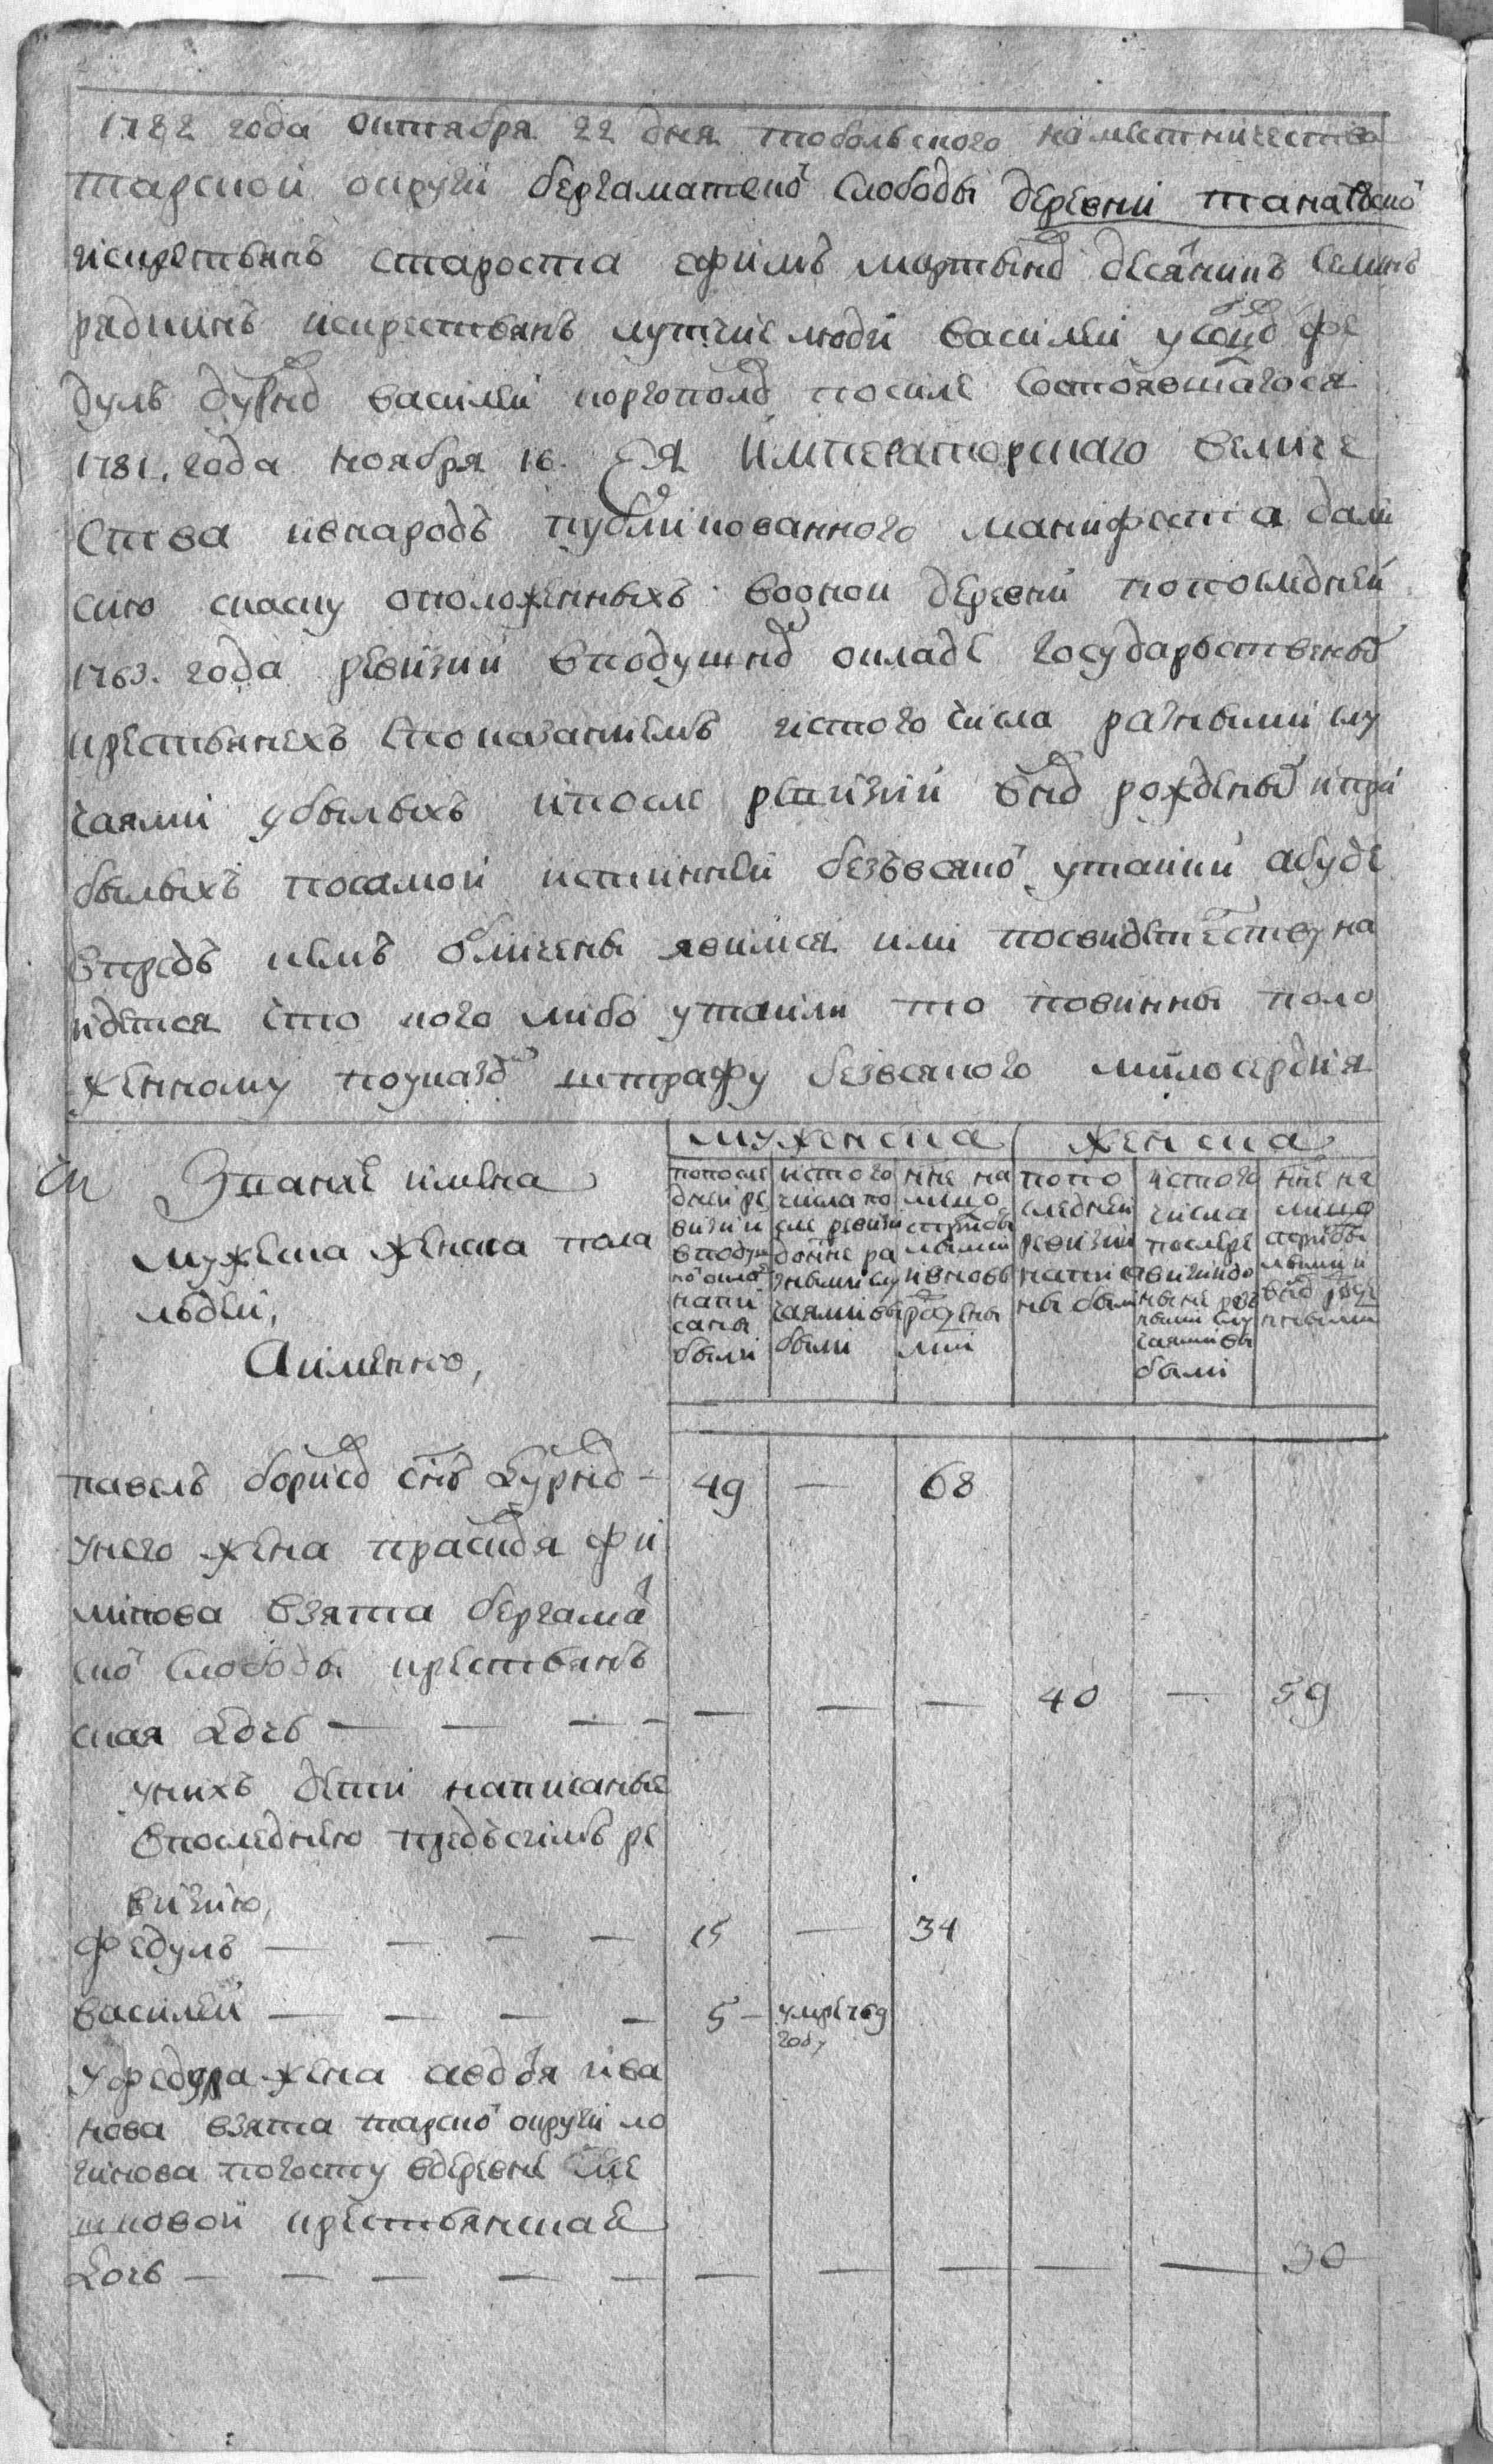 1782 года октября 22 дня тобольского наместничества
тарской округи бергаматской слободы деревни танатовской
искрестьянъ староста ефимъ мартыновъ десятникъ семенъ
рядкинъ искрестьянъ лутчие люди василей усовъ фе
дулъ дурновъ василей посиле состоявшагося
1781. года ноября 16. Ея императорскаго величе
ства ивнародъ публикованного манифеста дали
сию скаску оположенныхъ воонои деревни попоследней
1763. года ревизии вподушномъ окладе государственныхъ
крестьянехъ споказаниемъ истого числа разными слу
чаями убылыхъ ипосле ревизии вновь рожденныхъ ипри
былыхъ посамой истинней безъвсякой утайки абуде
впредь кемъ обличены явимся или посвидетелству на
йдется что кого либо утаили то повинны поло
женному поуказомъ штрафу безвсякого милосердия
мужеска женска
Звание имена
мужеска женска пола
людей,
Аименно,
попосле
дней ре
визии
вподуш
номъ окладе
напи
саны
были
истого
числа по
сле ревизии
доныне ра
зными слу
чаями вы
были
ныне на
лицо
сприбы
лыми
ивновь
рожденны
ми
попо
следней
ревизии
написа
ны были
истого
числа
послере
визиидо
ныне раз
ными слу
чаями вы
были
ныне на
лицо
сприбы
лыми и
вновь рож
денными
павелъ борисовъ снъ дурновъ — 49 — 68
унего жена прасковья фи
липова взята бергамат
ской слободы крестьянъ
ская дочь — — — — — — — 40 — 59
унихъ дети написанные
впоследнею предъсимъ ре
визию,
федулъ — — — — 15 — 34
василей — — — — 5 — умре 769
году
уфедула жена авдотья ива
нова взята тарской округи ло
гинова погосту вдеревне
шковой крестьянская
дочь — — — — — — — — — — 30